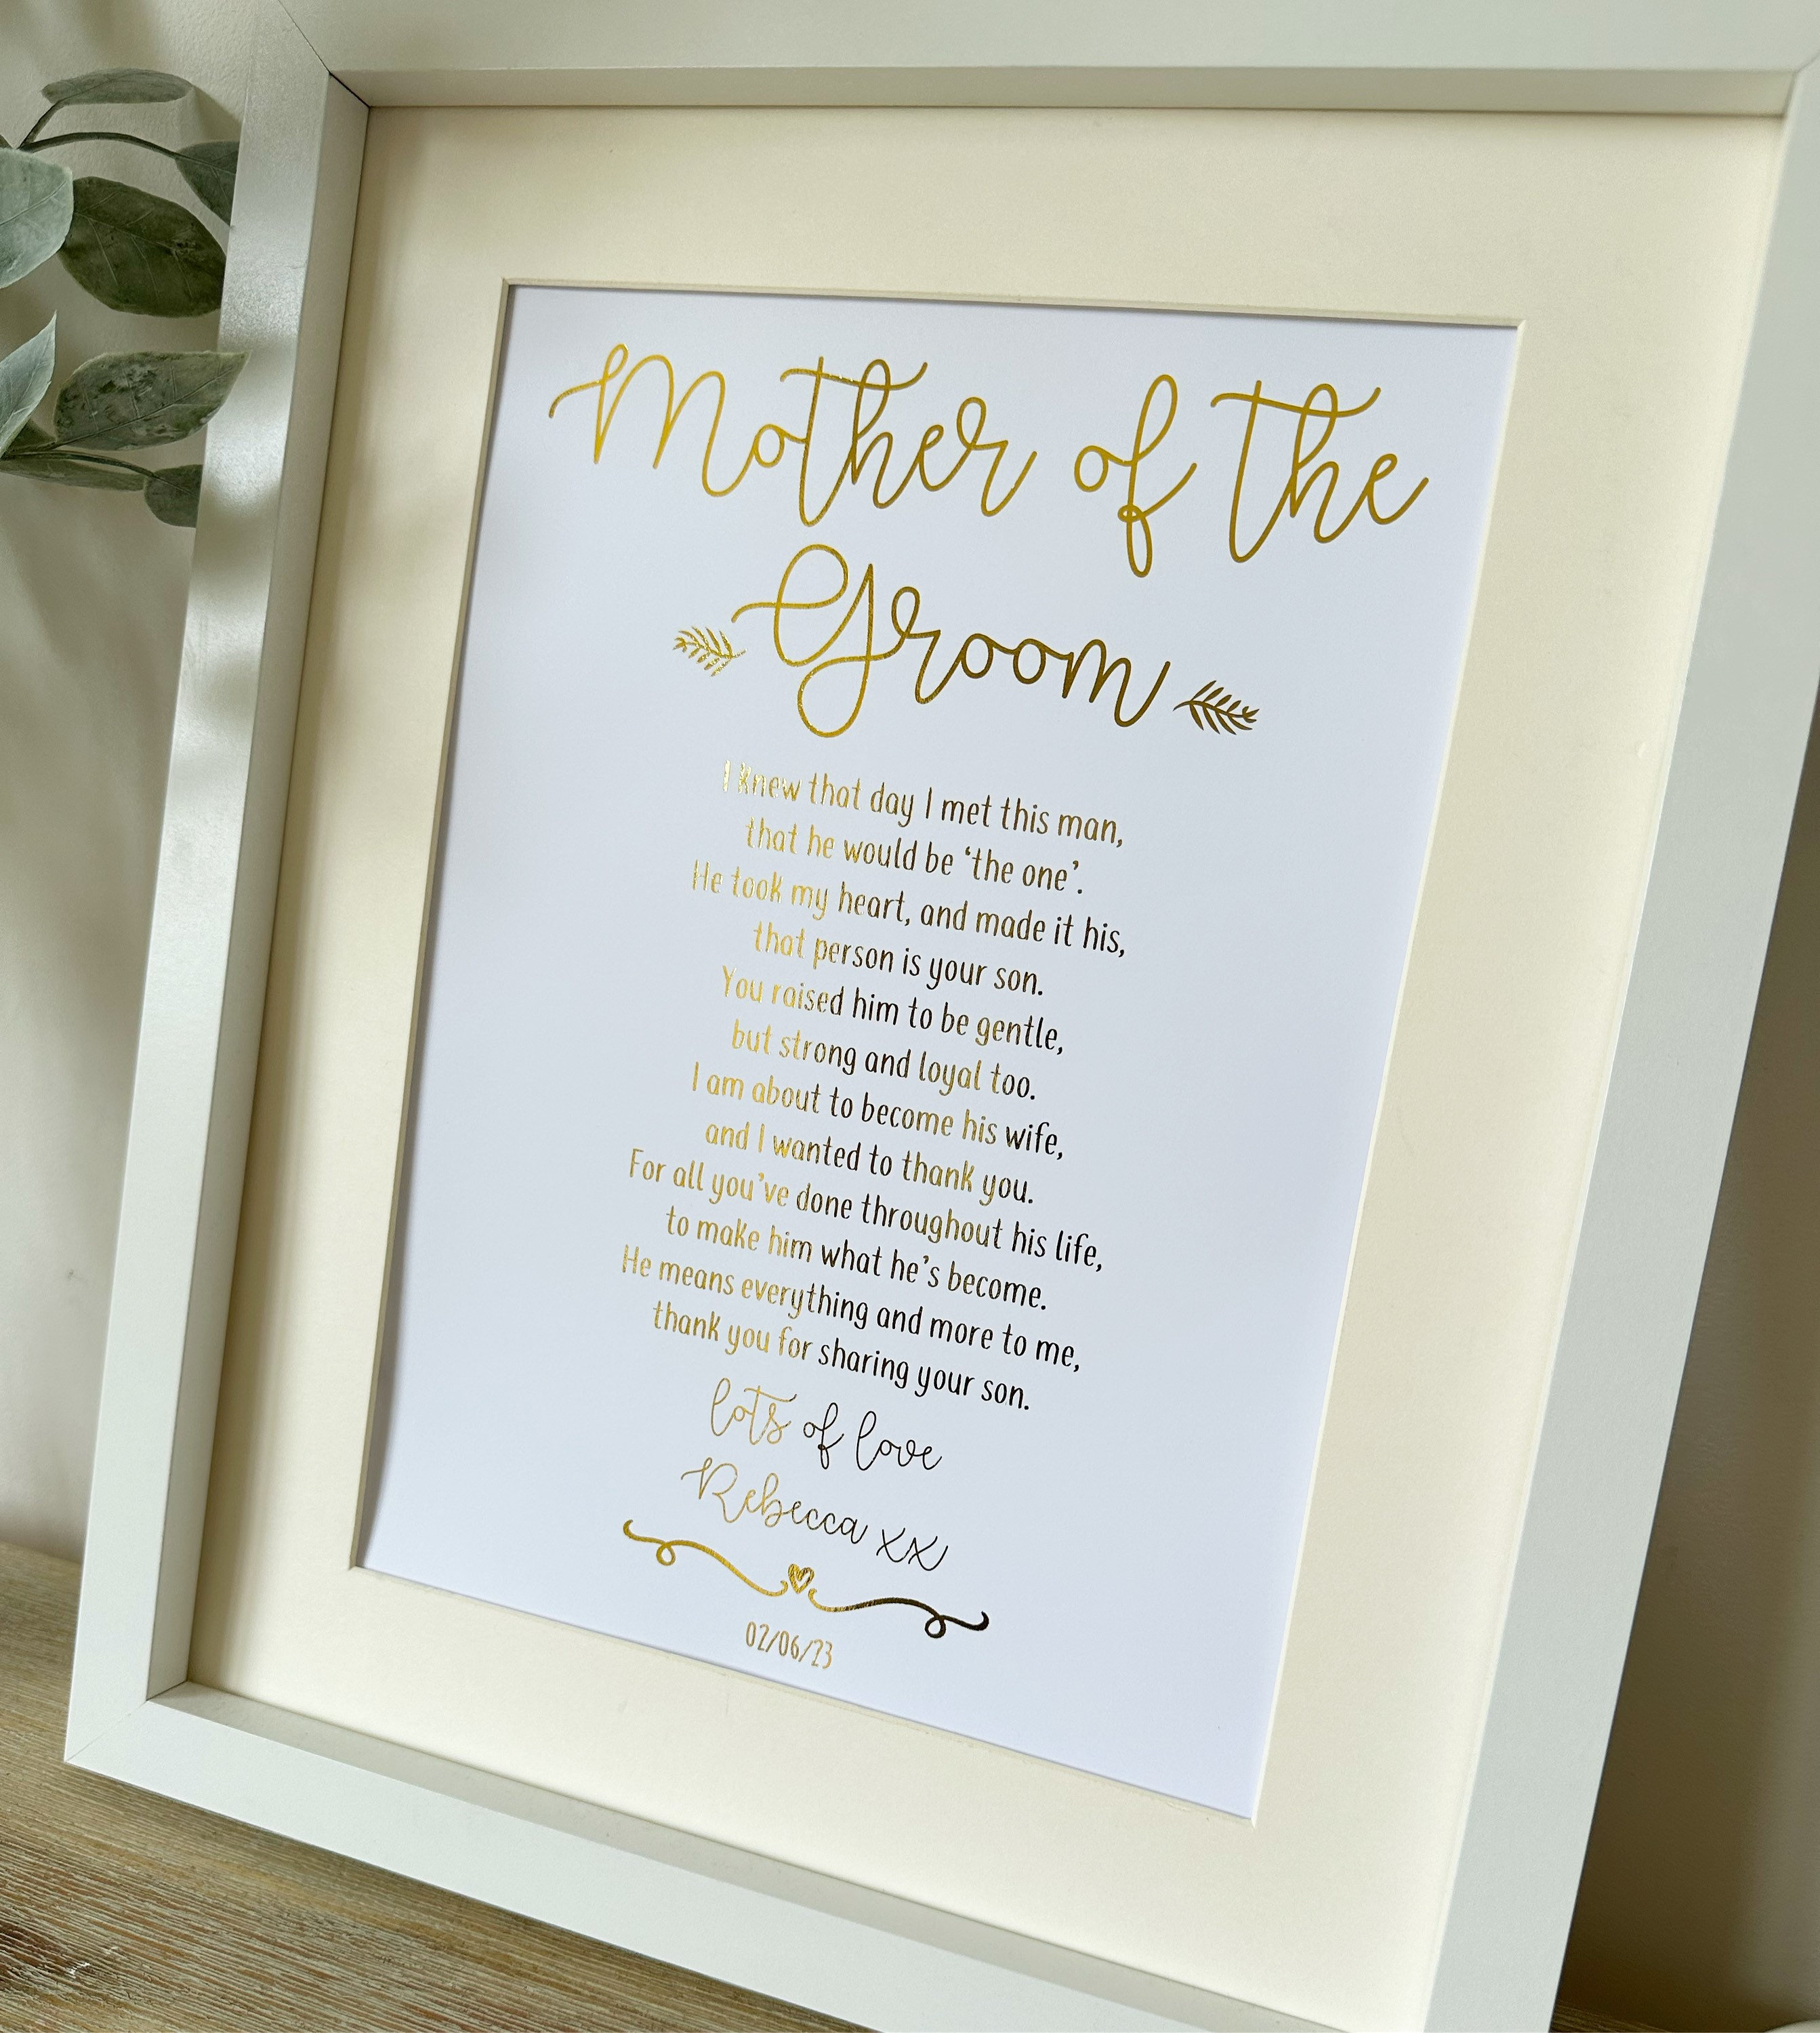 Mother of the
Groom
I knew that day I met this man,
that he would be ‘the one’.
He took my heart, and made it his,
that person is your son.
You raised him to be gentle,
but strong and loyal too.
I am about to become his wife,
and I wanted to thank you.
For all you’ve done throughout his life,
to make him what he’s become.
He means everything and more to me,
thank you for sharing your son.
lots of love
Rebecca xx
02/06/23